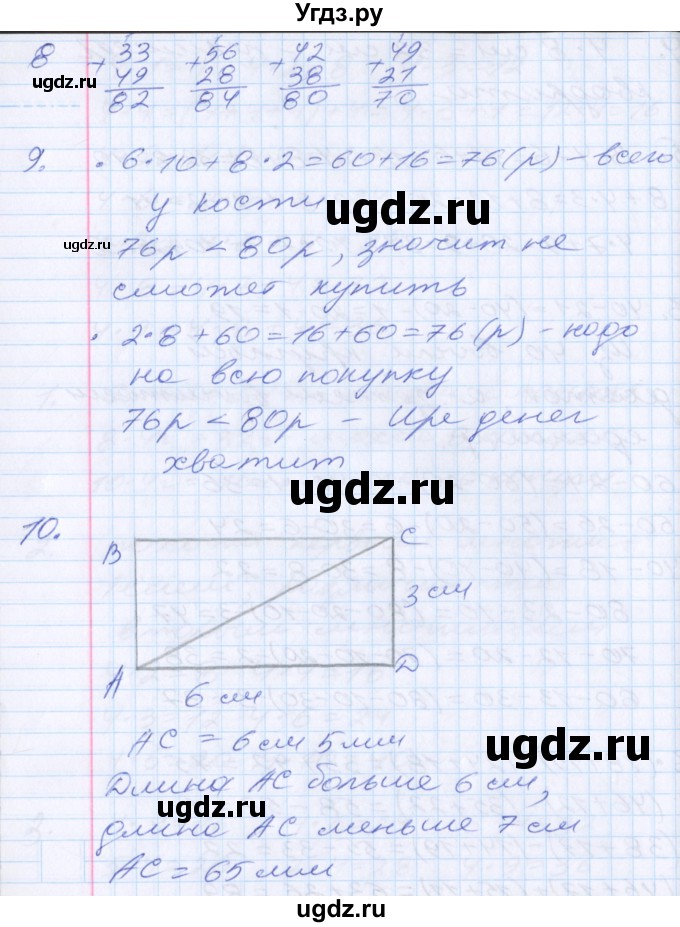 Угдз.ру
8 33 56 42 49
+ + + +
49 28 38 21
82 84 80 70
ugdz.ru
9. • 6·10+8·2=60+16=76(р) – всего
у кости
ugdz.ru
76р < 80р, значит не
ugdz.ru
сможет купить
• 2·8+60=16+60=76(р) – надо
на всю покупку
76р < 80р – Ире денег
хватит
ugdz.ru
10.
B C
3 см
A D
6 см
AC = 6 см 5 мм
ugdz.ru
Длина AC больше 6 см,
ugdz.ru
длина AC меньше 7 см
AC = 65 мм
ugdz.ru